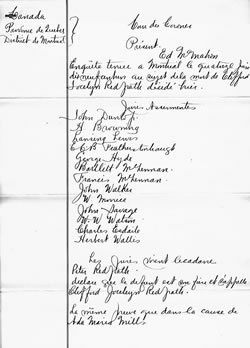 Canada
Province de Quebec
District de Montreal
Cour du Coroner
Présent
Ed McMahon
Enquête tenue a Montreal le quatorze juin
dix neuf cent un au sujet de la mort de Clifford
Jocelyn Redpath décédé hier.
Jurés Assermentés
John Dunlop jr
H Browning
Lansing Lewis
C.C.B Featherstonhaugh
George Hyde
Bartlett McLennan
Francis McLennan
John Walker
W. Morrice
John Savage
W. W. Watson
Charles Esdaile
Herbert Wallis
Les Jurés
Peter Redpath
déclare que le defunt est son frère et s'appelle
Clifford Jocelyn Redpath.
La même preuve que dans la cause de
Ada Maria Mills